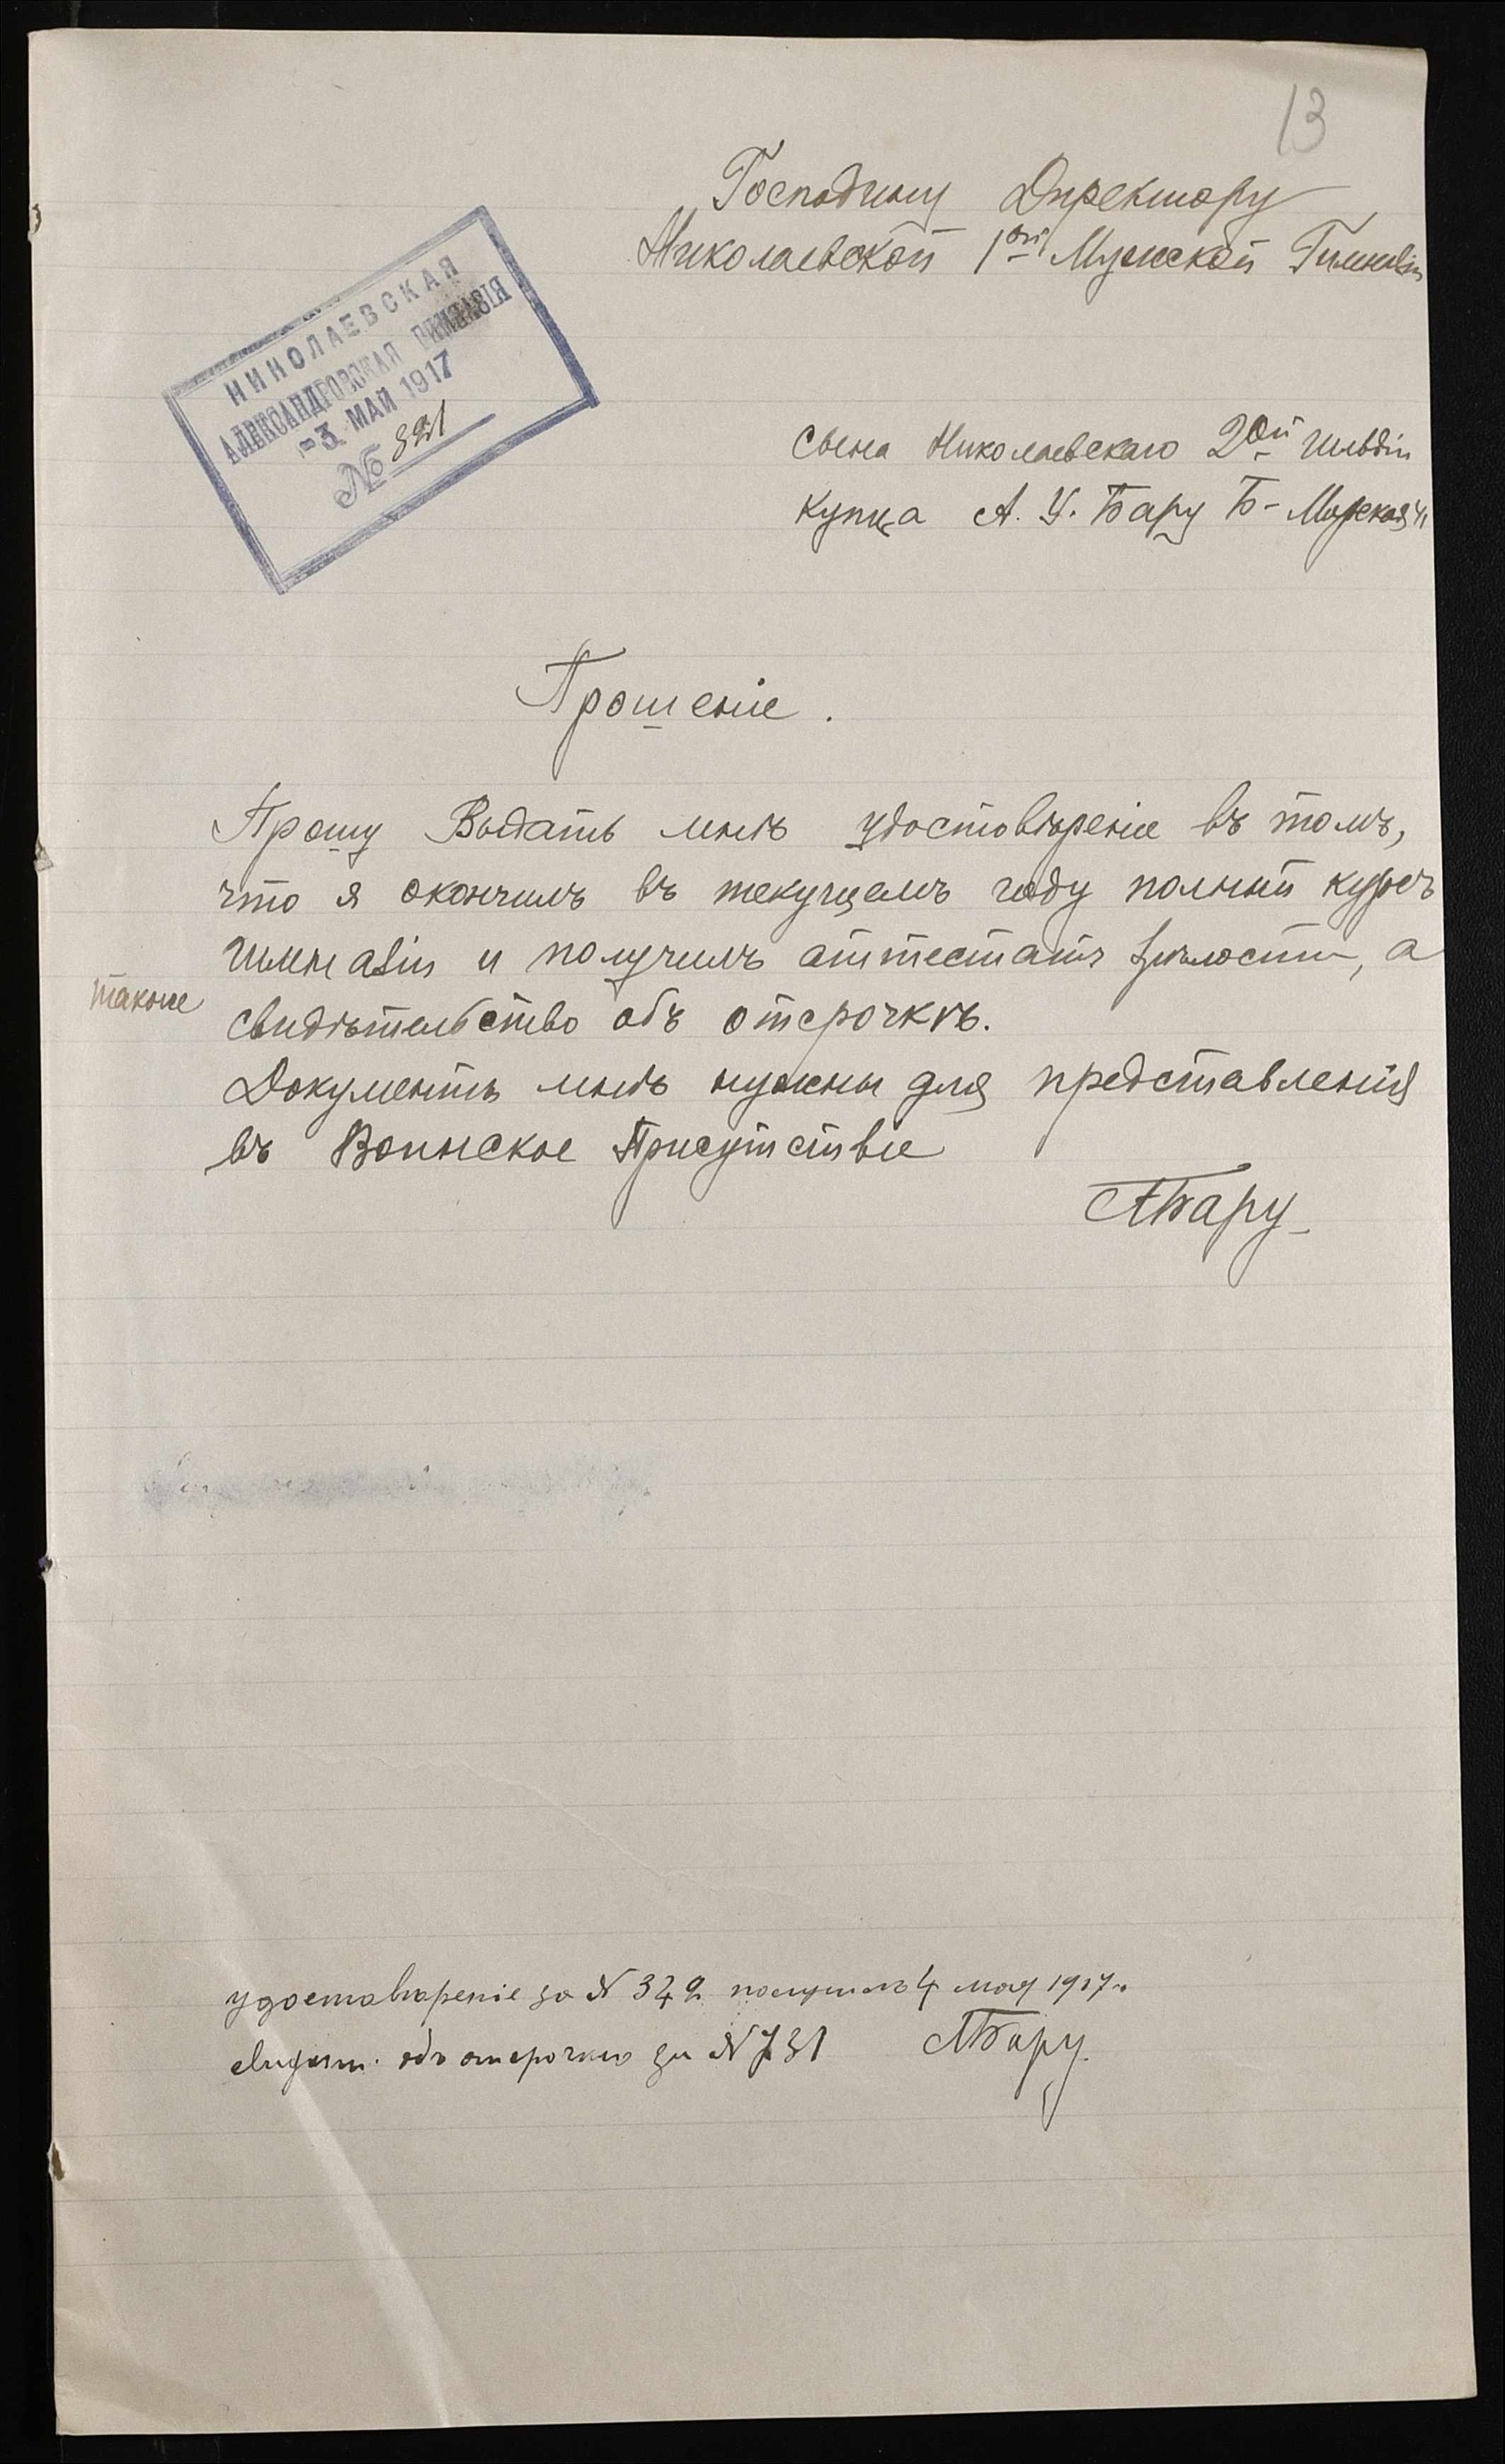 13
Господину Директору
Николаевской 1ой Мужской Гимназіи
НИКОЛАЕВСКАЯ
АЛЕКСАНДРОВСКАЯ ГИМНАЗІЯ
-3 МАЙ 1917
№
сына Николаевскаго 2ой гильдіи
купца А. У. Бару Б-Морская
Прошеніе.
Прошу Выдать мнѣ удостовѣреніе въ томъ,
что я окончилъ въ текущемъ году полный курсъ
гимназіи и получилъ аттестатъ зрѣлости, а
также свидѣтельство объ отсрочкѣ.
Документы мнѣ нужны для представленія
въ Воинское Присутствіе
АБару
удостовѣреніе за N 329 получилъ 4 мая 1917 г.
свидѣт. объ отсрочкѣ за N 731 АБару.